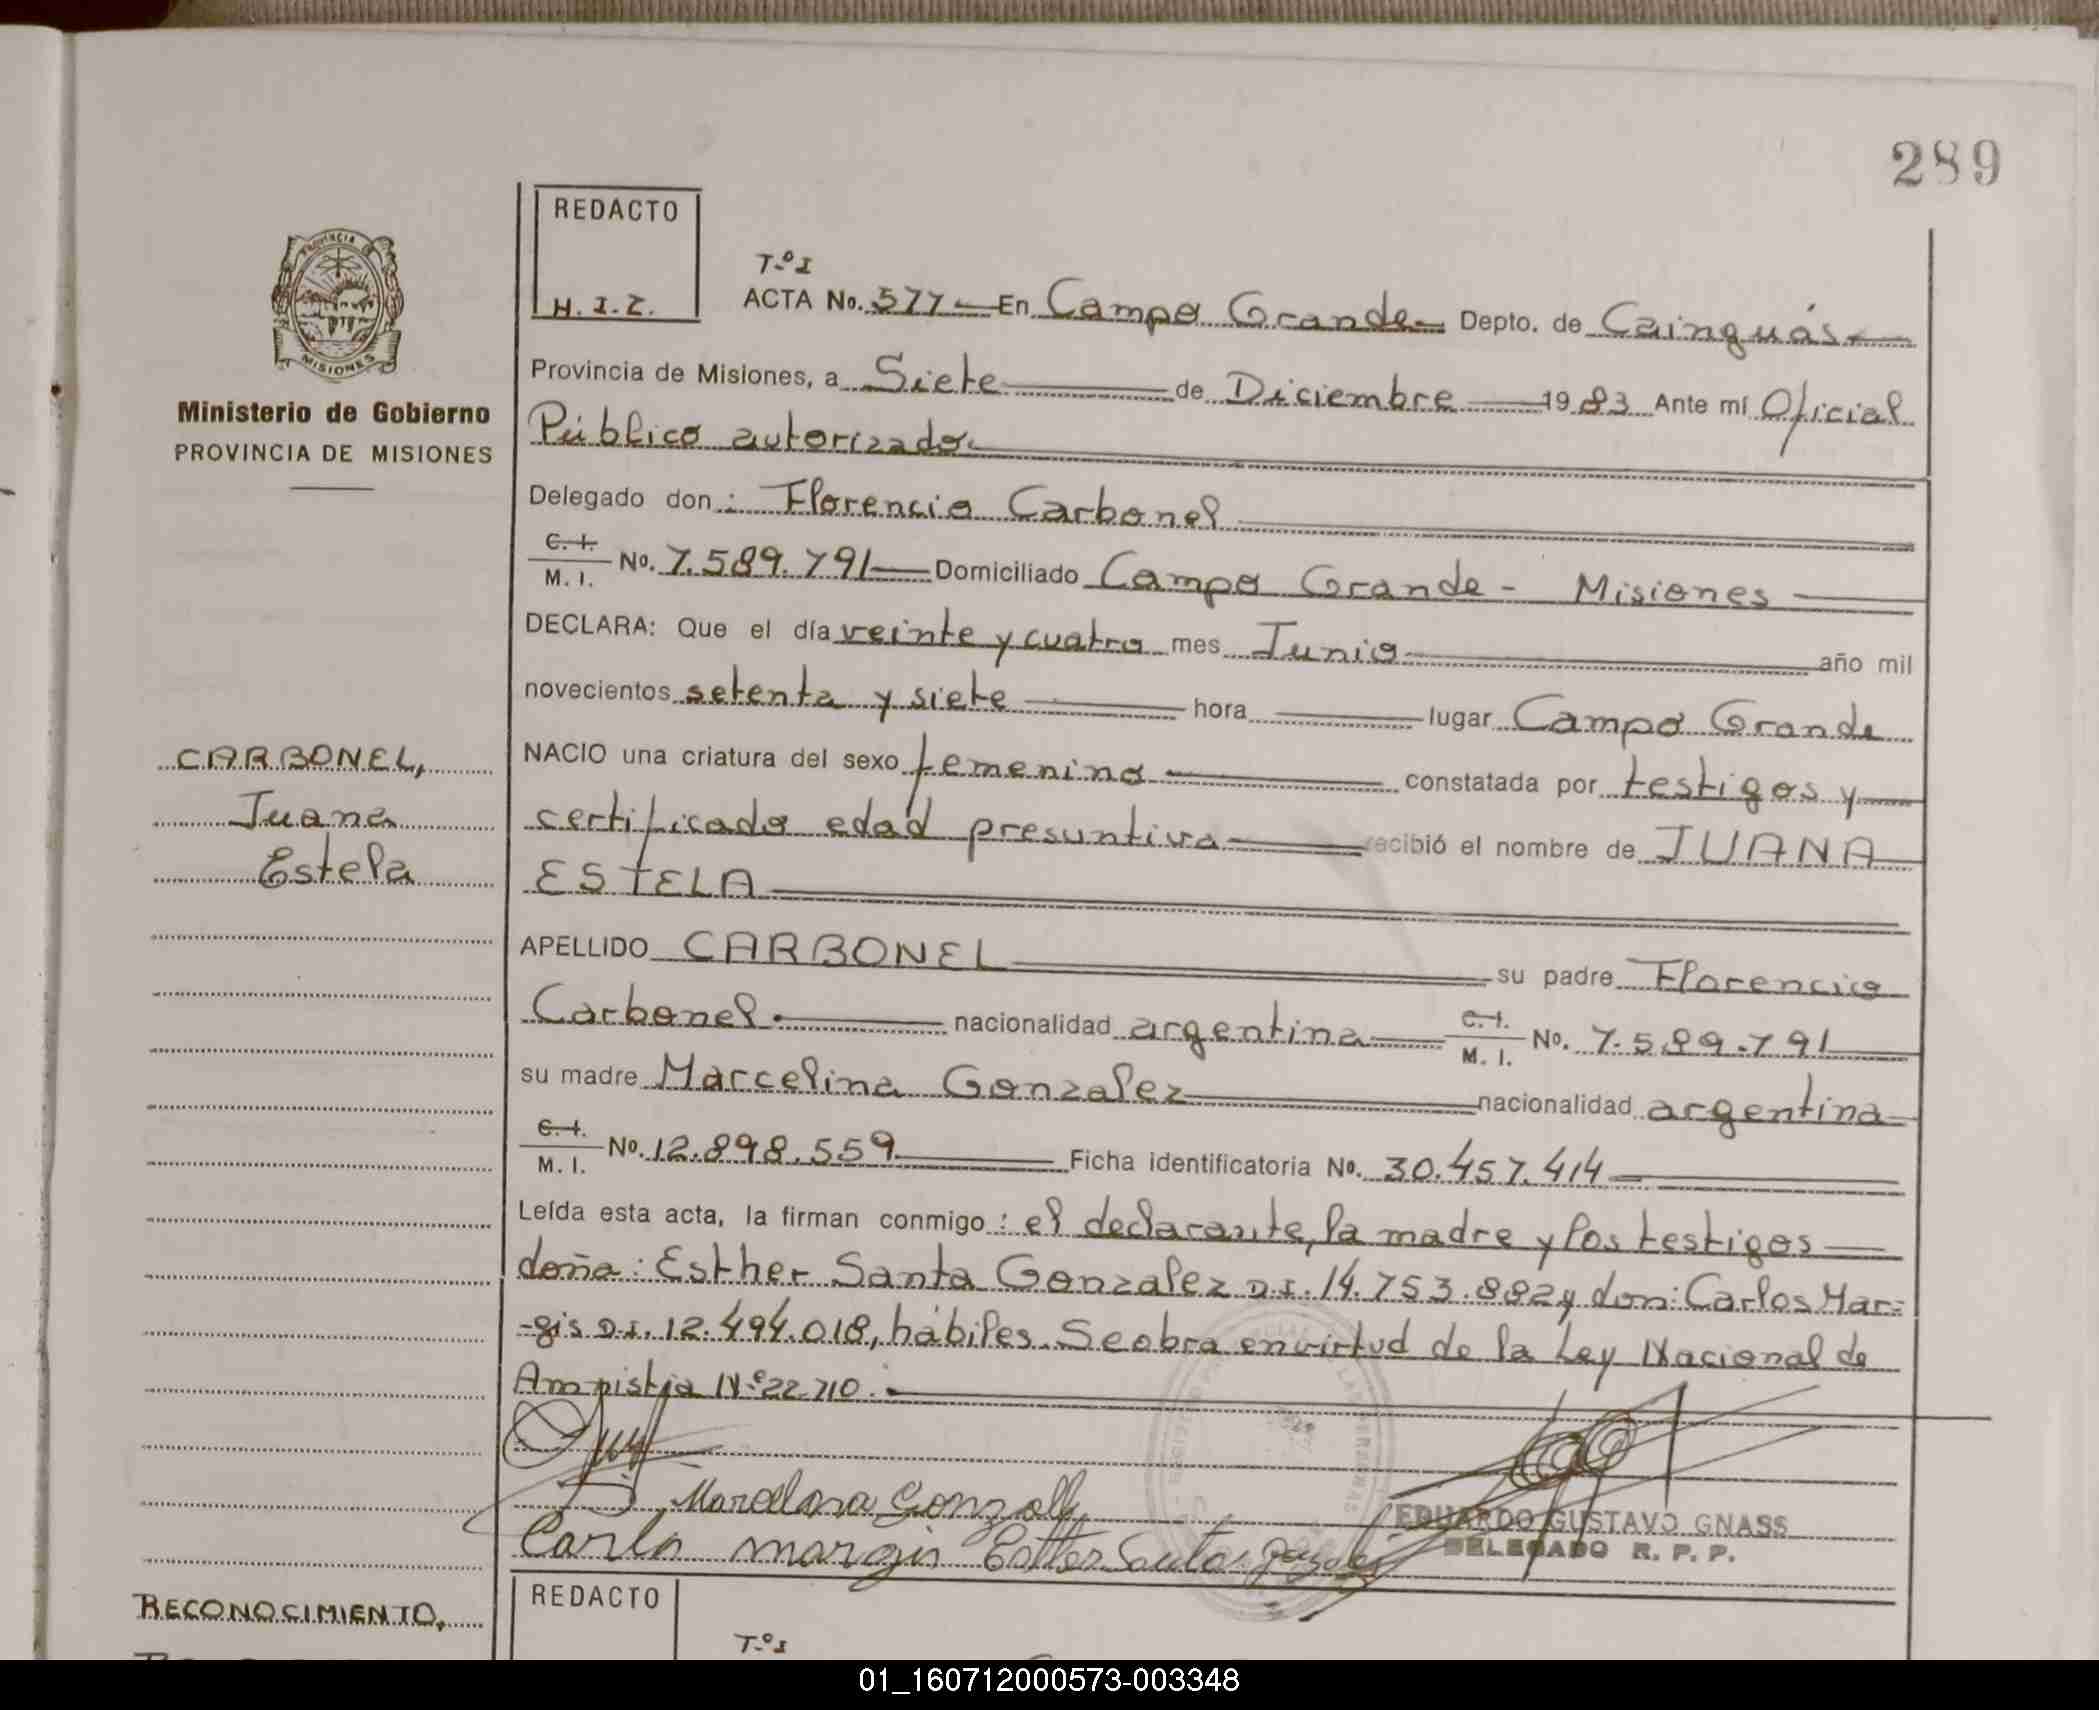 289
REDACTO
H. I. Z.
PROVINCIA
MISIONES
Ministerio de Gobierno
PROVINCIA DE MISIONES
T.º I
ACTA No. 577 — En Campo Grande Depto. de Cainguás
Provincia de Misiones, a Siete de Diciembre 1983 Ante mí Oficial
Público autorizado
Delegado don: Florencio Carbonel
C. I. M. I. No. 7.589.791 — Domiciliado Campo Grande - Misiones
DECLARA: Que el día veinte y cuatro mes Junio año mil
novecientos setenta y siete hora lugar Campo Grande
CARBONEL,
Juana
Estela
NACIO una criatura del sexo femenino constatada por testigos y
certificado edad presuntiva recibió el nombre de JUANA
ESTELA
APELLIDO CARBONEL su padre Florencio
Carbonel nacionalidad argentina C. I. M. I. No. 7.589.791
su madre Marcelina Gonzalez nacionalidad argentina
C. I. M. I. No. 12.898.559 Ficha identificatoria No. 30.457.414
Leída esta acta, la firman conmigo: el declarante, la madre y los testigos
doña: Esther Santa Gonzalez D.I. 14.753.882 y don: Carlos Mar=
-gis D.I. 12.494.018, hábiles. Se obra en virtud de la Ley Nacional de
Amnistia Nº 22.710.
Marcelina Gonzalez
Carlos margis Esther Santa gonzalez
EDUARDO GUSTAVO GNASS
DELEGADO R. P. P.
RECONOCIMIENTO,
REDACTO
T.º I
01_160712000573-003348